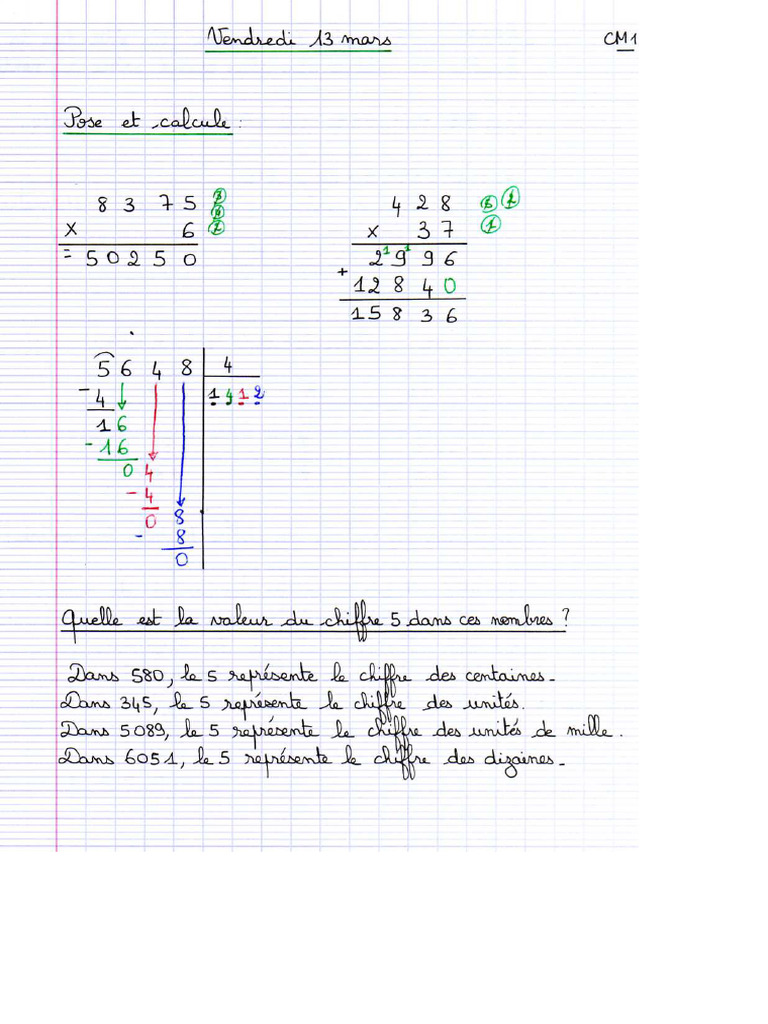 Vendredi 13 mars
CM1
Pose et calcule:
8 3 7 5
x 6
= 5 0 2 5 0
4 2 8
x 3 7
1 1
2 9 9 6
+
1 2 8 4 0
1 5 8 3 6
5 6 4 8 4
- 4 1 4 1 2
1 6
- 1 6
0 4
- 4
0 8
- 8
0
Quelle est la valeur du chiffre 5 dans ces nombres ?
Dans 580, le 5 représente le chiffre des centaines.
Dans 345, le 5 représente le chiffre des unités.
Dans 5089, le 5 représente le chiffre des unités de mille.
Dans 6051, le 5 représente le chiffre des dizaines.